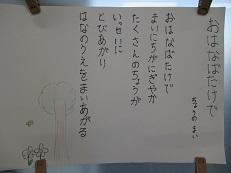 おはなばたけで
ちょうの まい
おはなばたけで
まいにちがにぎやか
たくさんのちょうが
いっせいに
とびあがり
はなのうえをまいあがる